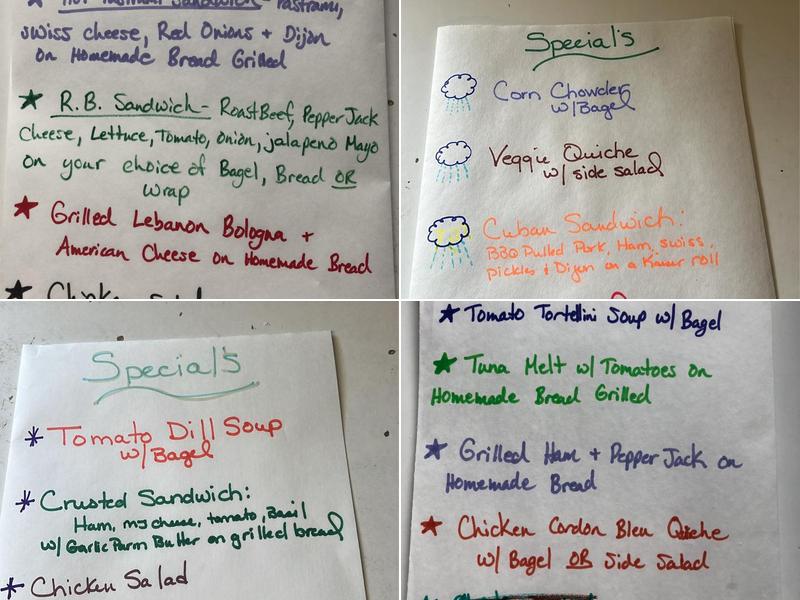 Hot Pastrami Sandwich - Pastrami,
swiss cheese, Red Onions + Dijon
on Homemade Bread Grilled
R.B. Sandwich - Roast Beef, Pepper Jack
Cheese, Lettuce, Tomato, Onion, jalapeno Mayo
on your choice of Bagel, Bread OR
wrap
Grilled Lebanon Bologna +
American Cheese on Homemade Bread
Special's
Corn Chowder
w/Bagel
Veggie Quiche
w/ side salad
Cuban Sandwich:
BBQ Pulled Pork, Ham, swiss,
pickles + Dijon on a Kaiser roll
Special's
Tomato Dill Soup
w/Bagel
Crusted Sandwich:
Ham, my cheese, tomato, Basil
w/ Garlic Parm Butter on grilled bread
Chicken Salad
Tomato Tortellini Soup w/ Bagel
Tuna Melt w/ Tomatoes on
Homemade Bread Grilled
Grilled Ham + Pepper Jack on
Homemade Bread
Chicken Cordon Bleu Quiche
w/ Bagel OR Side Salad